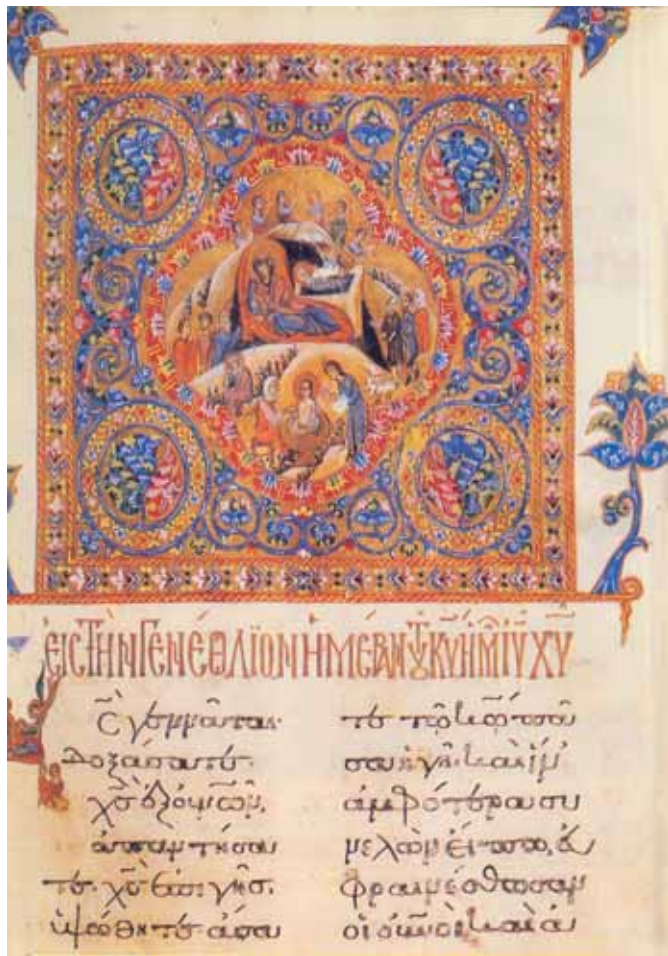 ΕΙΣ ΤΗΝ ΓΕΝΕΘΛΙΟΝ ΗΜΕΡΑΝ ΤΟΥ ΚΥ ΗΜ ΙΥ ΧΥ
Χς γεννᾶται·
δοξάσατε·
χς ἐξ οὐνῶν,
ἀπαντήσατε·
χς ἐπὶ γῆς,
ὑψώθητε· ἄσα
τε τῷ κω πᾶ
σα ἡ γῆ· καὶ ἵν'
ἀμφότερα συ
νελὼν εἴπω, εὐ
φραινέσθωσαν
οἱ οὐνοὶ καὶ ἀ